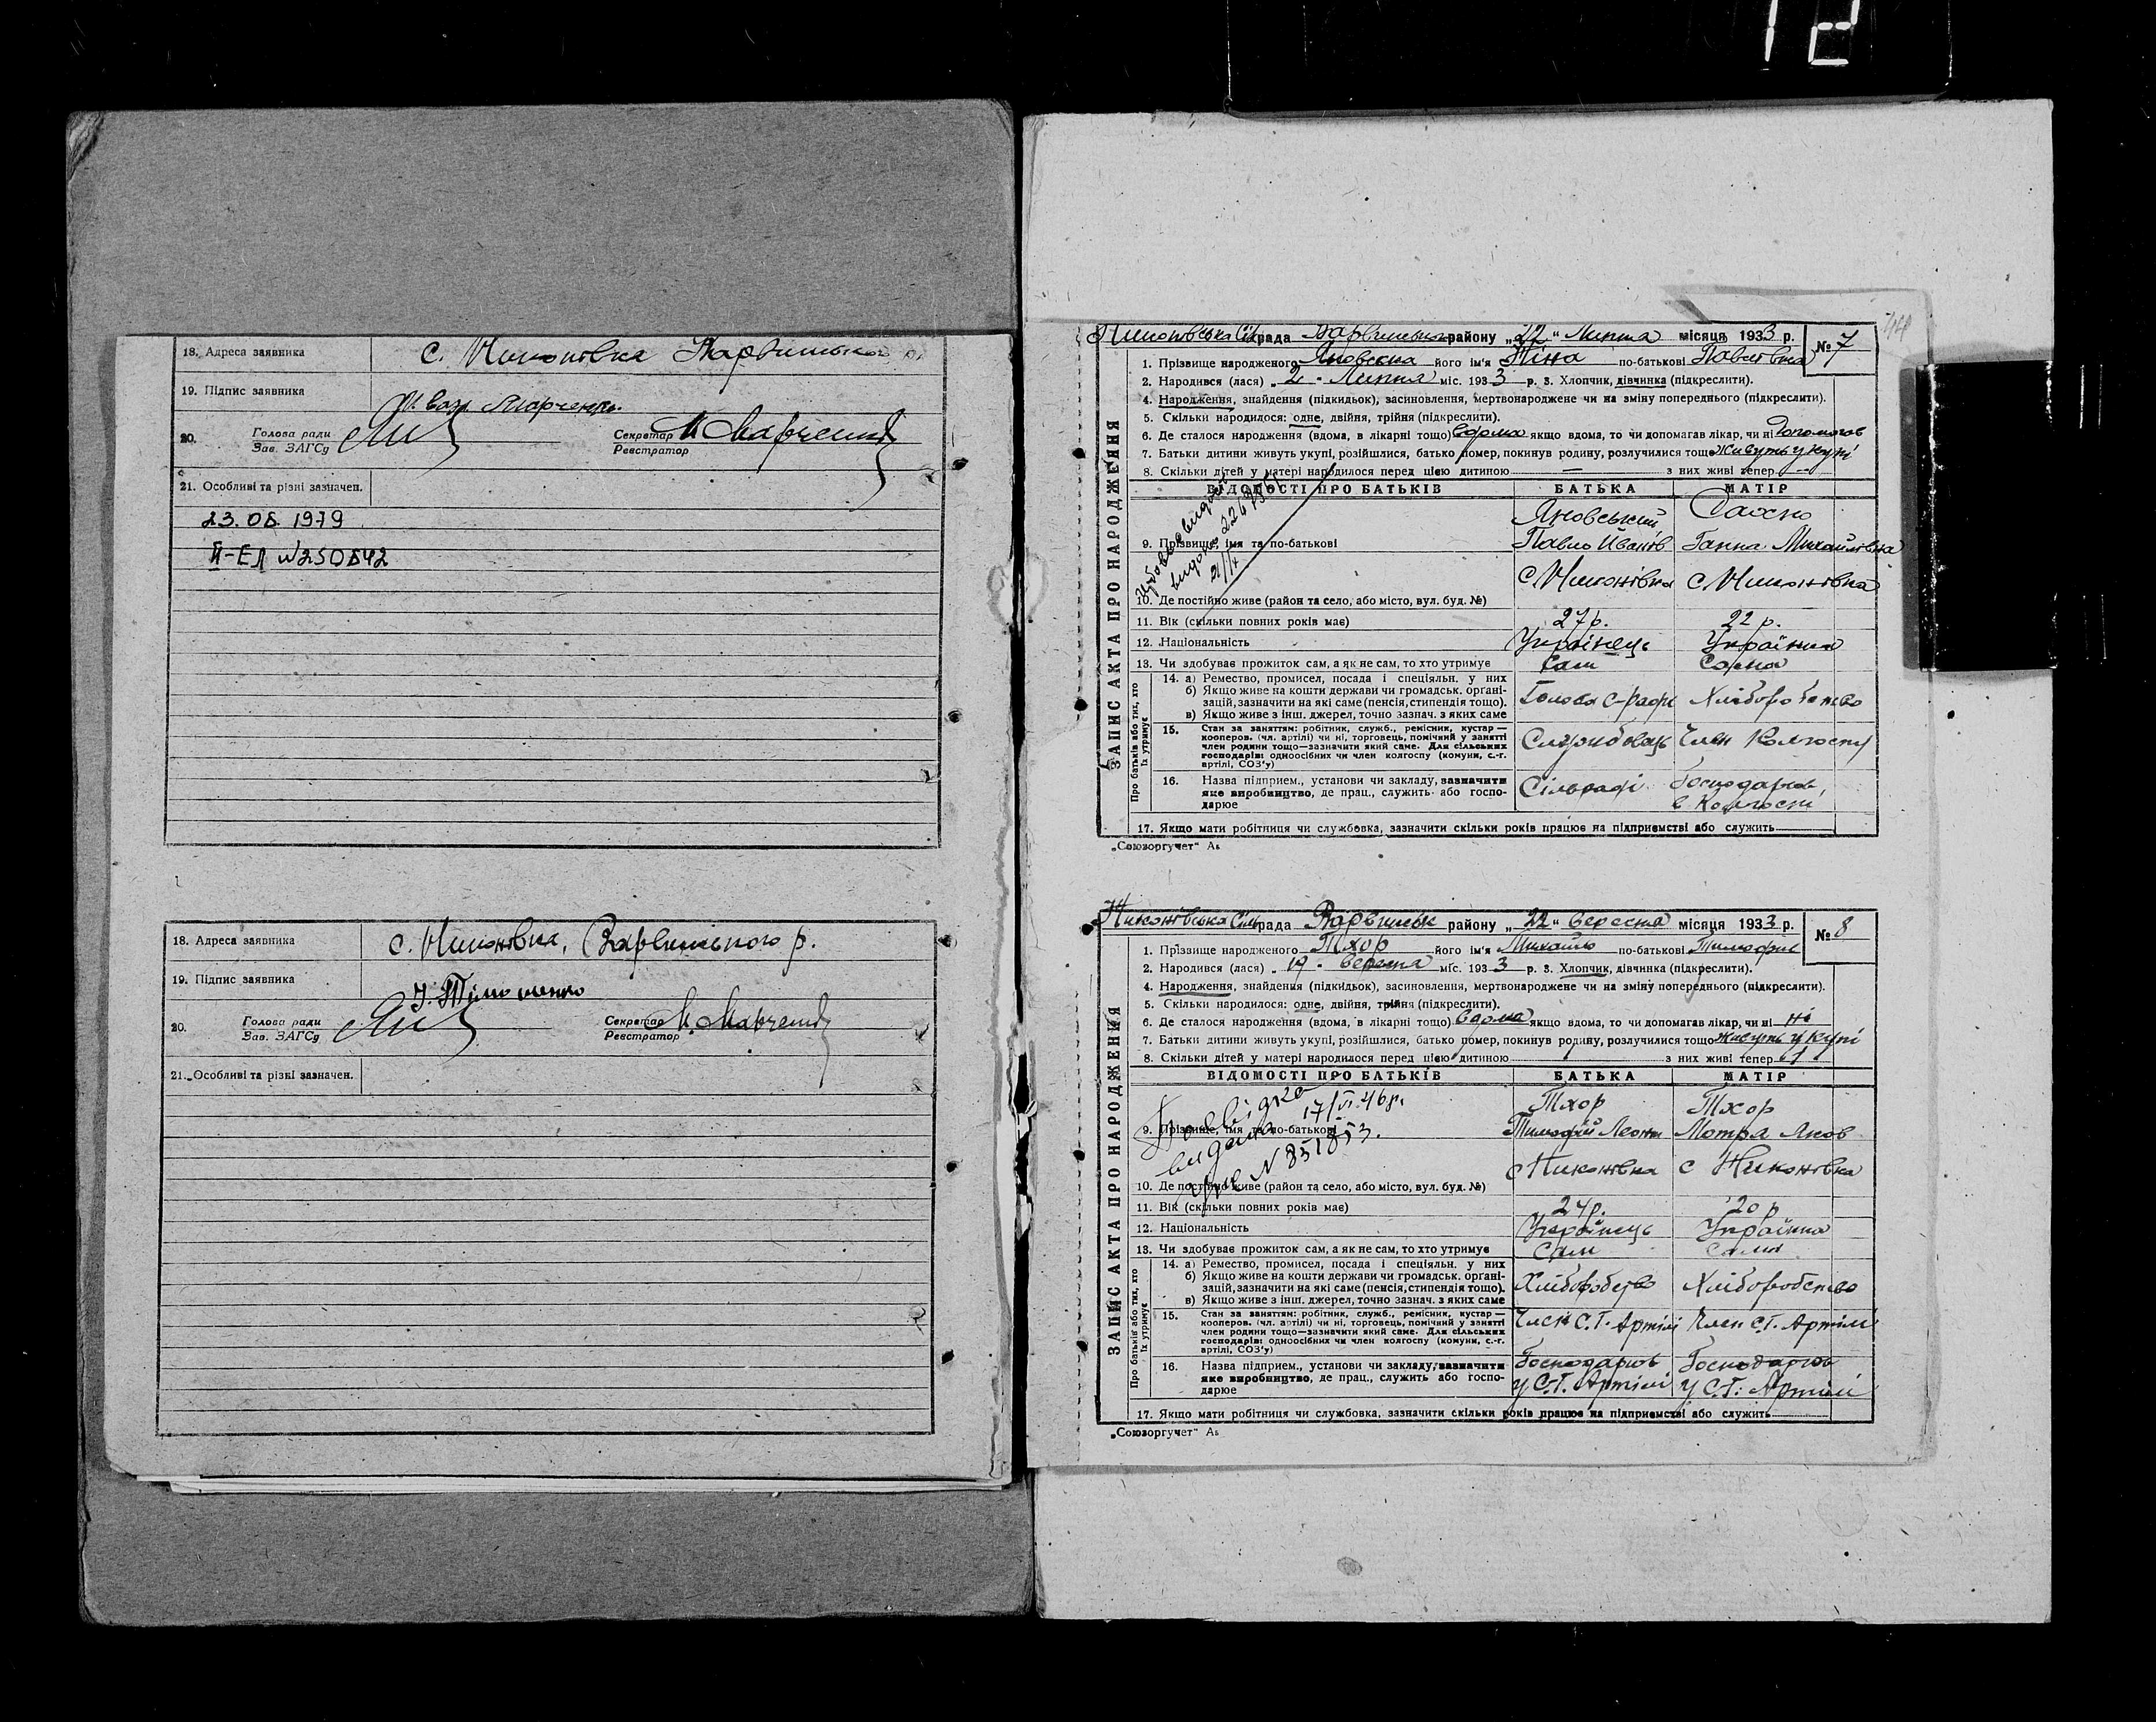 12
18. Адреса заявника с. Никонівка Варвинського р.
19. Підпис заявника Марченко.
20. Голова ради
Зав. ЗАГСу
Секретар М Марченко
Реєстратор
21. Особливі та різні зазначен.
23.08.1979
ІІ-ЕЛ №250642
18. Адреса заявника с. Никонівка, Варвинського р.
19. Підпис заявника Тімошенко
20. Голова ради
Зав. ЗАГСу
Секретар М. Марченко
Реєстратор
21. Особливі та різні зазначен.
Никонівська Сільрада Варвинськ району „22“ Липня місяця 1933 р. № 7
ЗАПИС АКТА ПРО НАРОДЖЕННЯ
1. Прізвище народженого Яновська його ім'я Ніна по-батькові Павлівна
2. Народився (лася) „2“ Липня міс. 1933 р. 3. Хлопчик, дівчинка (підкреслити).
4. Народження, знайдення (підкидьок), засиновлення, мертвонароджене чи на зміну попереднього (підкреслити).
5. Скільки народилося: одне, двійня, трійня (підкреслити).
6. Де сталося народження (вдома, в лікарні тощо) вдома якщо вдома, то чи допомагав лікар, чи ні допомогав
7. Батьки дитини живуть укупі, розійшлися, батько помер, покинув родину, розлучилися тощо Живуть укупі
8. Скільки дітей у матері народилося перед цією дитиною — з них живі тепер —
ВІДОМОСТІ ПРО БАТЬКІВ БАТЬКА МАТІР
Яновський
9. Прізвище, імя та по-батькові Павло Иванів Ганна Михайлівна
с. Никонівка с. Никонівка
10. Де постійно живе (район та село, або місто, вул. буд. №)
11. Вік (скільки повних років має) 27 р. 22 р.
12. Національність Українець Українка
13. Чи здобуває прожиток сам, а як не сам, то хто утримує Сам Сама
Про батьків або тих, хто їх утримує
14. а) Ремество, промисел, посада і спеціяльн. у них
б) Якщо живе на кошти держави чи громадськ. органі-
зацій, зазначити на які саме (пенсія, стипендія тощо). Голова с-ради Хліборобство
в) Якщо живе з інш. джерел, точно зазнач. з яких саме
15. Стан за заняттям: робітник, служб., ремісник, кустар —
кооперов. (чл. артілі) чи ні, торговець, помічний у занятті
член родини тощо—зазначити який саме. Для сільських Службовець Член Колгоспу
господарів: одноосібних чи член колгоспу (комуни, с.-г.
артілі, СОЗ'у)
16. Назва підприєм., установи чи закладу, зазначити
яке виробництво, де прац., служить або госпо-
дарює Сільраді Господарює в Колгоспі
17. Якщо мати робітниця чи службовка, зазначити скільки років працює на підприємстві або служить
„Союзоргучет“
Никонівська Сільрада Варвинськ району „22“ вересня місяця 1933 р. № 8
ЗАПИС АКТА ПРО НАРОДЖЕННЯ
1. Прізвище народженого Тхор його ім'я Михайло по-батькові Тимофив
2. Народився (лася) „19“ вересня міс. 1933 р. 3. Хлопчик, дівчинка (підкреслити).
4. Народження, знайдення (підкидьок), засиновлення, мертвонароджене чи на зміну попереднього (підкреслити).
5. Скільки народилося: одне, двійня, трійня (підкреслити).
6. Де сталося народження (вдома, в лікарні тощо) вдома якщо вдома, то чи допомагав лікар, чи ні ні
7. Батьки дитини живуть укупі, розійшлися, батько помер, покинув родину, розлучилися тощо живуть укупі
8. Скільки дітей у матері народилося перед цією дитиною з них живі тепер 1
ВІДОМОСТІ ПРО БАТЬКІВ БАТЬКА МАТІР
17/VI.46р.
видана
N 851853.
Тхор Тхор
9. Прізвище, імя та по-батькові Тимофій Леонт Мотря Яков
с Никонівка с Никонівка
10. Де постійно живе (район та село, або місто, вул. буд. №)
11. Вік (скільки повних років має) 24р. 20 р
12. Національність Українець Українка
13. Чи здобуває прожиток сам, а як не сам, то хто утримує Сам Сама
Про батьків або тих, хто їх утримує
14. а) Ремество, промисел, посада і спеціяльн. у них
б) Якщо живе на кошти держави чи громадськ. органі-
зацій, зазначити на які саме (пенсія, стипендія тощо). Хліборобство Хліборобство
в) Якщо живе з інш. джерел, точно зазнач. з яких саме
15. Стан за заняттям: робітник, служб., ремісник, кустар —
кооперов. (чл. артілі) чи ні, торговець, помічний у занятті Член С.Г. Артілі Член С.Г. Артілі
член родини тощо—зазначити який саме. Для сільських
господарів: одноосібних чи член колгоспу (комуни, с.-г.
артілі, СОЗ'у)
16. Назва підприєм., установи чи закладу, зазначити Господарює Господарює
яке виробництво, де прац., служить або госпо- у С.Г. Артілі у С.Г. Артілі
дарює
17. Якщо мати робітниця чи службовка, зазначити скільки років працює на підприємстві або служить
„Союзоргучет“